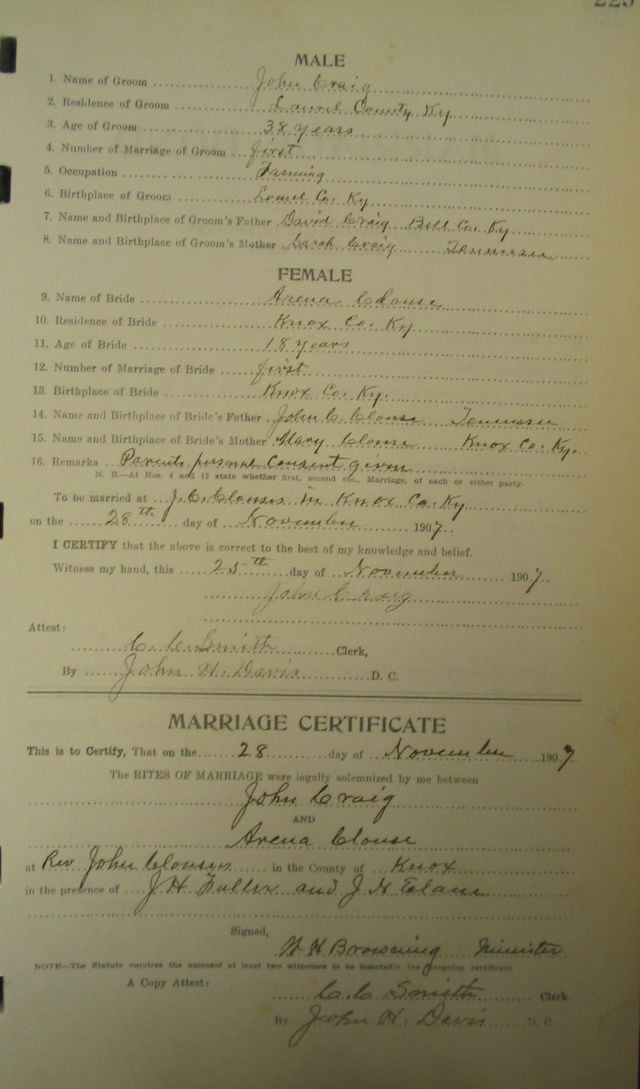 MALE
1. Name of Groom John Craig
2. Residence of Groom Laurel County Ky
3. Age of Groom 38 years
4. Number of Marriage of Groom first
5. Occupation Farming
6. Birthplace of Groom Lourel Co. Ky
7. Name and Birthplace of Groom's Father David Craig Bell Co. Ky
8. Name and Birthplace of Groom's Mother Sarah Craig Tennessee
FEMALE
9. Name of Bride Arena Clouse
10. Residence of Bride Knox Co. Ky
11. Age of Bride 18 years
12. Number of Marriage of Bride first
13. Birthplace of Bride Knox Co. Ky.
14. Name and Birthplace of Bride's Father John C Clouse Tennessee
15. Name and Birthplace of Bride's Mother Mary Clouse Knox Co. Ky.
16. Remarks Parents personal Consent given
N. B.—At Nos. 4 and 12 state whether first, second etc., Marriage, of each or either party.
To be married at J. C. Clouses in Knox Co. Ky
on the 28th day of November 1907
I CERTIFY that the above is correct to the best of my knowledge and belief.
Witness my hand, this 25th day of November 1907
John Craig
Attest:
C. C. Smith Clerk,
By John H. Davis D. C.
MARRIAGE CERTIFICATE
This is to Certify, That on the 28 day of November 1907
The RITES OF MARRIAGE were legally solemnized by me between
John Craig
AND
Arena Clouse
at Rev John Clouses in the County of Knox
in the presence of J H and J H
Signed,
H Browning Minister
NOTE—The Statute requires the names of at least two witnesses to be inserted in the foregoing certificate.
A Copy Attest:
C. C. Smith Clerk.
By John H. Davis D. C.